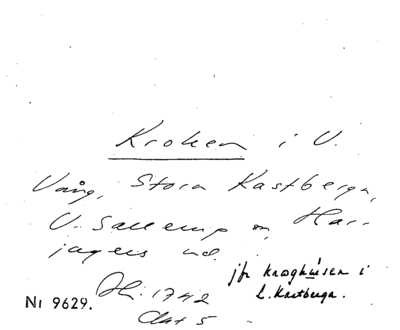 Kroken i V.
Vång, Stora Kastberga,
V. Sallerup o, Har-
jagers hd.
jfr kroghusen i
L. Kastberga.
Nr 9629.
1742
Akt 5